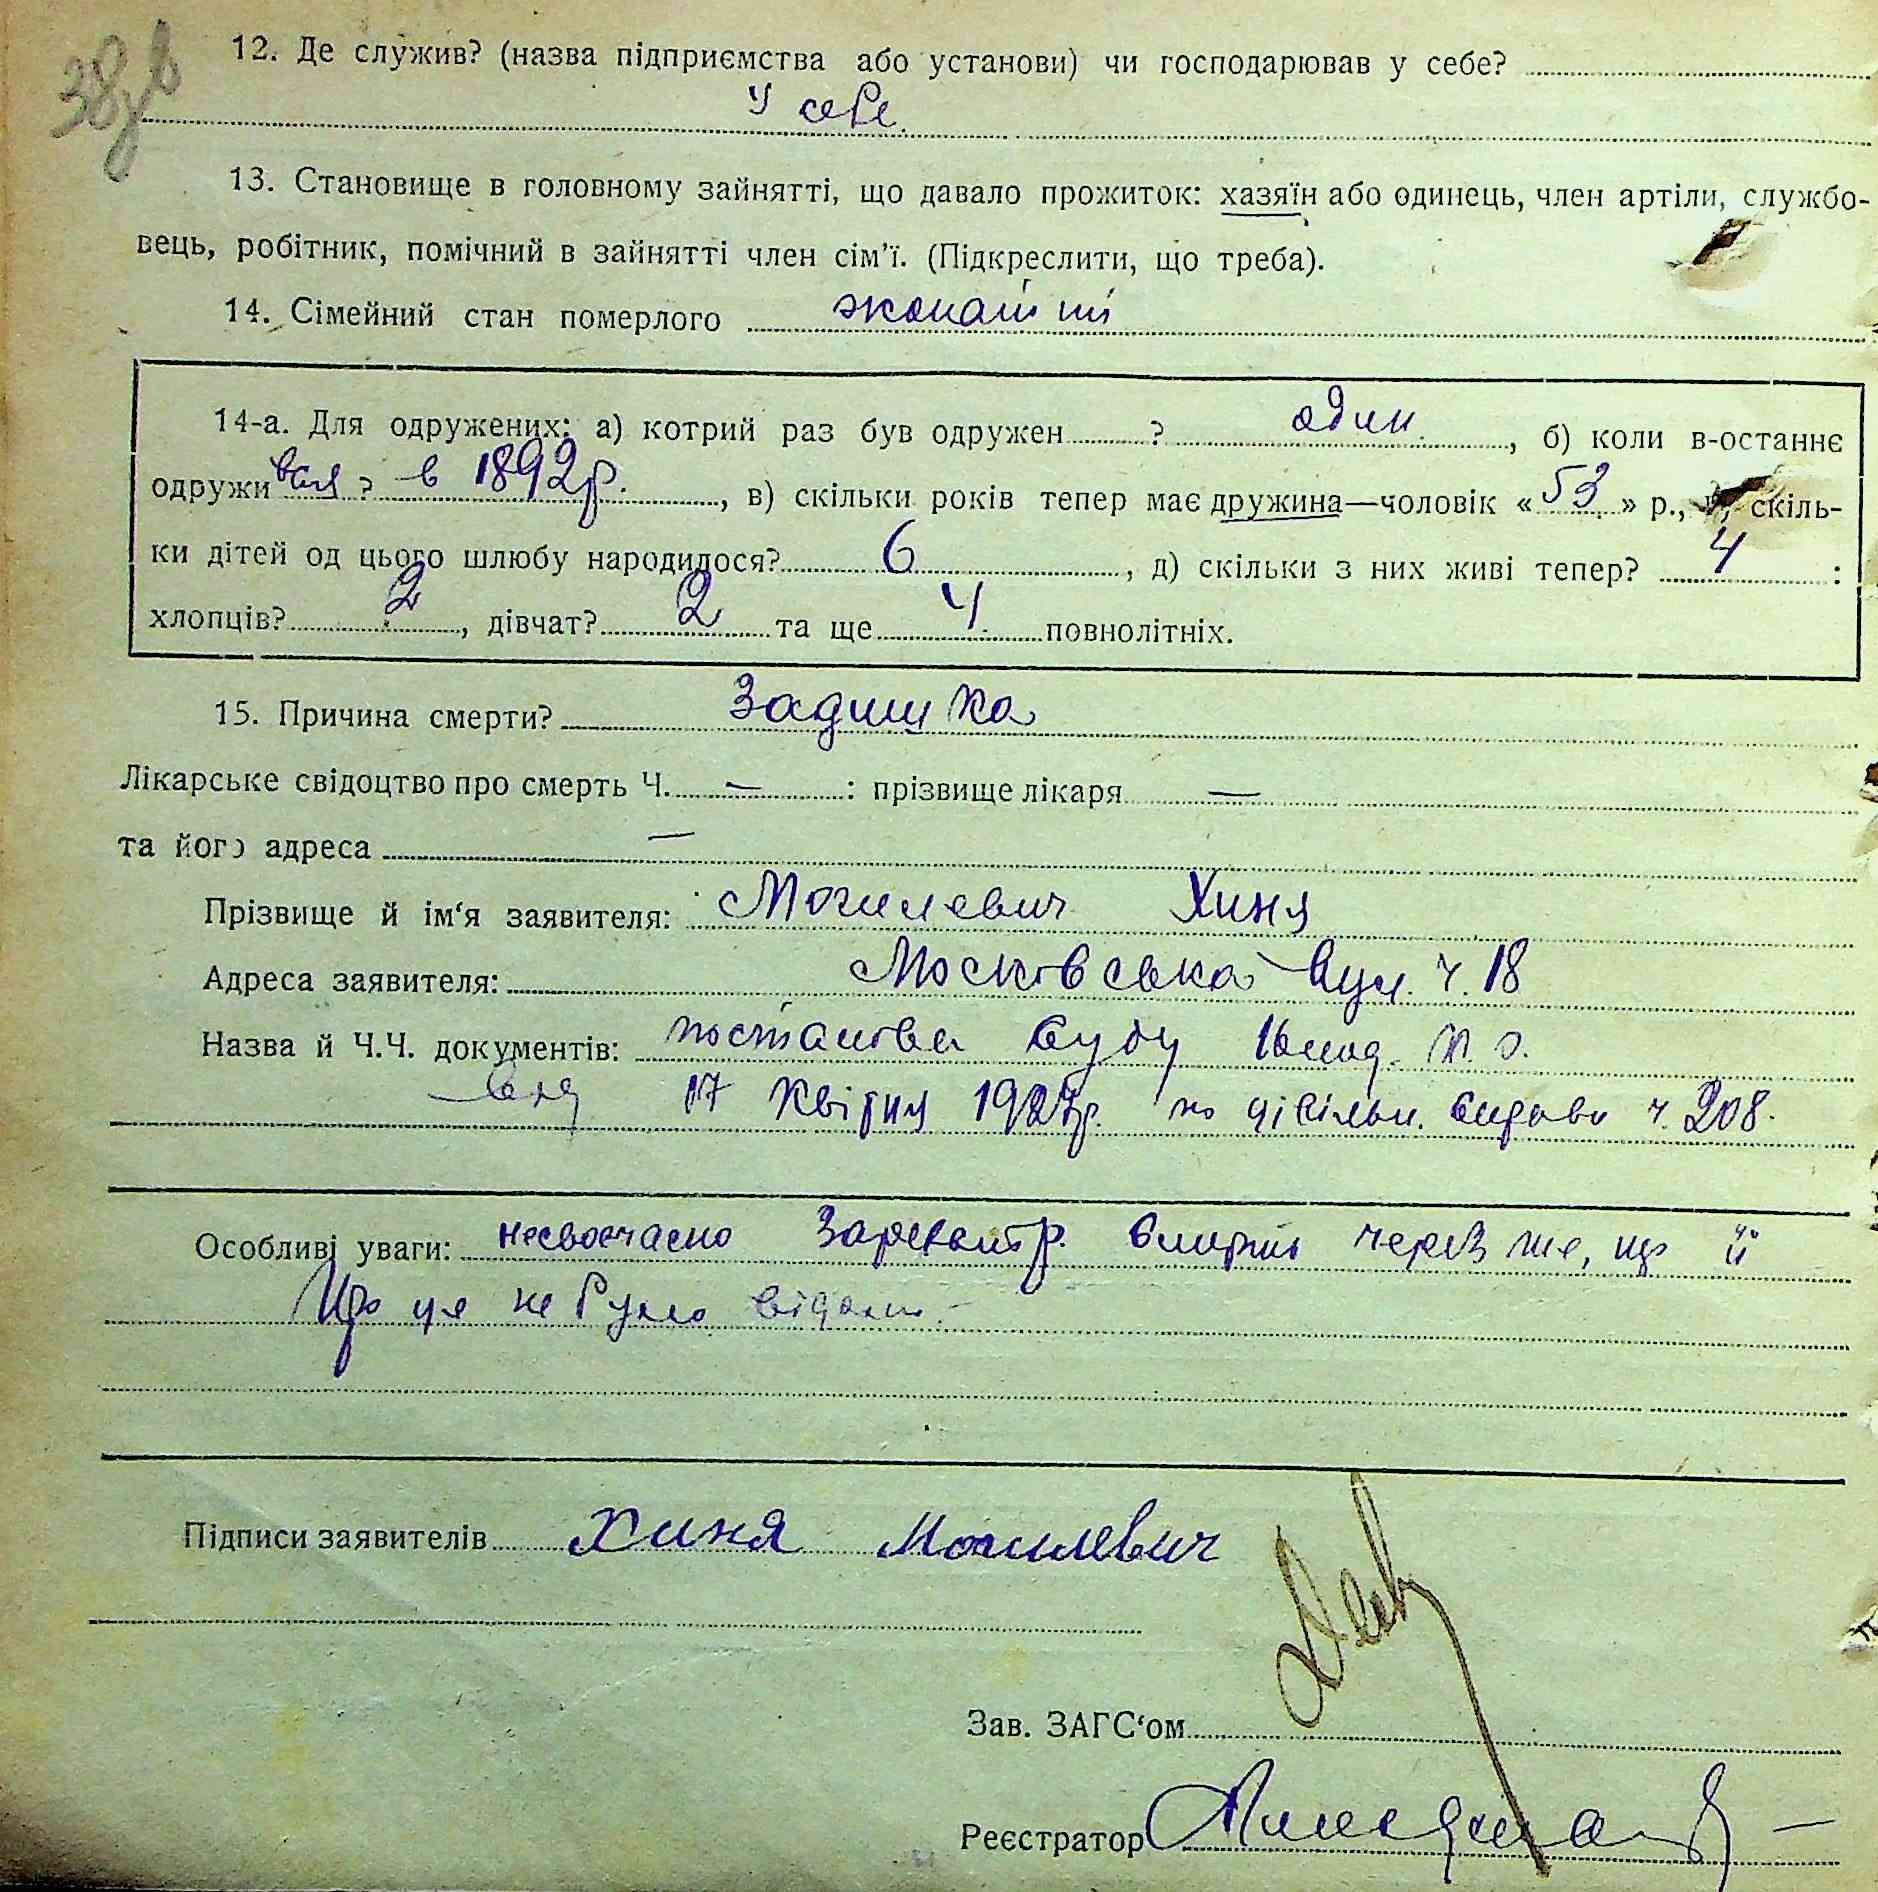 38зв
12. Де служив? (назва підприємства або установи) чи господарював у себе?
У себе
13. Становище в головному зайнятті, що давало прожиток: хазяїн або одинець, член артіли, службо-
вець, робітник, помічний в зайнятті член сім'ї. (Підкреслити, що треба).
14. Сімейний стан померлого жонатий
14-а. Для одружених: а) котрий раз був одружен ? один, б) коли в-останнє
одружився? в 1892р., в) скільки років тепер має дружина—чоловік «53» р., г) скіль-
ки дітей од цього шлюбу народилося? 6, д) скільки з них живі тепер? 4:
хлопців? 2, дівчат? 2 та ще 4 повнолітніх.
15. Причина смерти? Задишка
Лікарське свідоцтво про смерть Ч. — : прізвище лікаря —
та його адреса —
Прізвище й ім'я заявителя: Могилевич Хиня
Адреса заявителя: Московська вул. ч. 18
Назва й Ч.Ч. документів: постанова Суду
17 Квітня 1927р. по цівільн. справі ч. 208.
Особливі уваги: несвоєчасно смерть через те, що її
Про це не було відомо.
Підписи заявителів Хиня Могилевич
Зав. ЗАГС'ом
Реєстратор